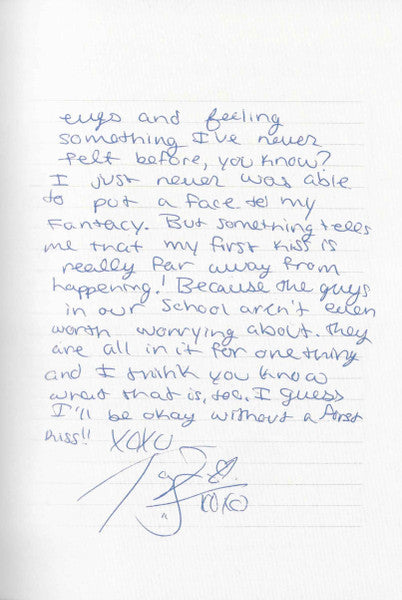 eyes and feeling
something I've never
felt before, you know?
I just never was able
to put a face to my
Fantacy. But something tells
me that my first kiss is
really far away from
happening! Because the guys
in our school aren't even
worth worrying about. they
are all in it for one thing
and I think you know
what that is, too. I guess
I'll be okay without a first
kiss!! XOXO
XOXO